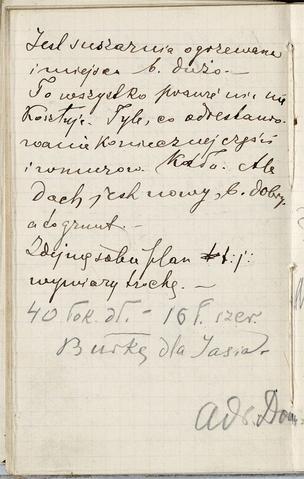 Jest suszarnia ogrzewana
i miejsca b. dużo. —
To wszystko prawie nic nie
kosztuje. Tyle, co odrestauro-
wanie koniecznej części
i remurow. Ale
dach jest nowy, b. dobry,
a to grunt. —
Zdejmę słaby plan t. j.
wymiary trochę. —
40 łok. dł. — 16 ł. szer.
Burkę dla Jasia.
Adr. Dom